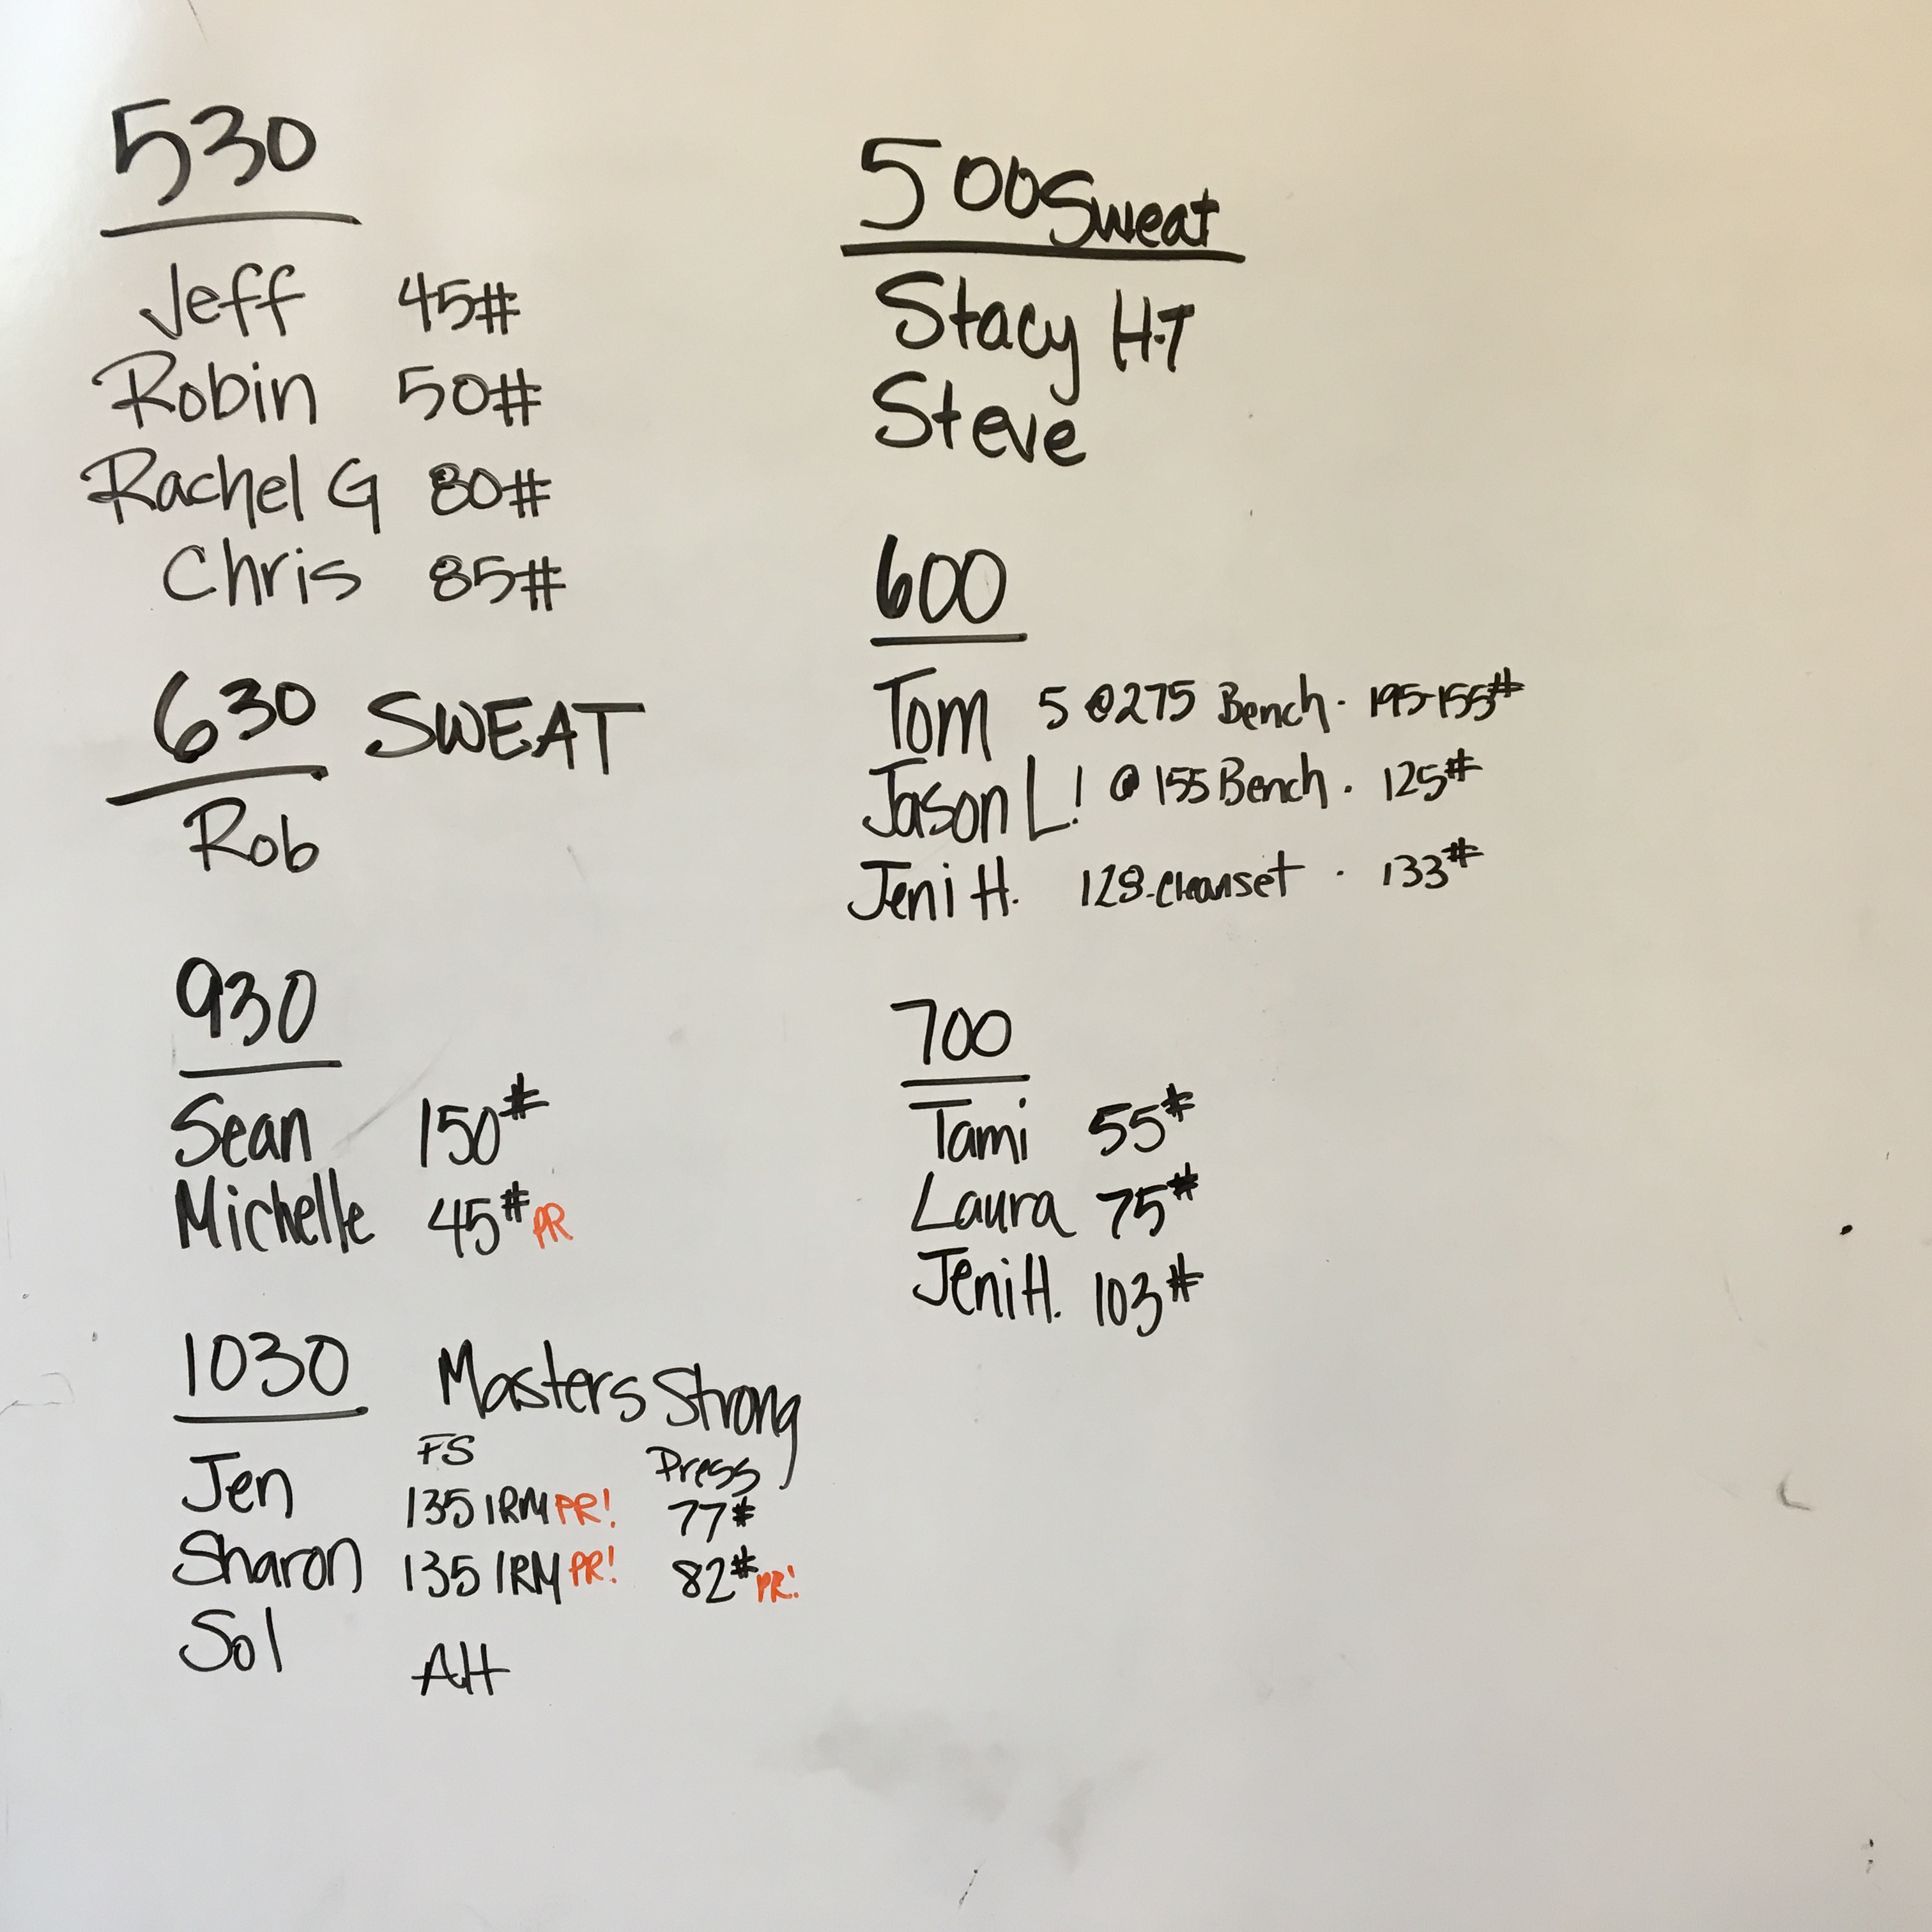 530
Jeff 45#
Robin 50#
Rachel G 80#
Chris 85#
630 SWEAT
Rob
930
Sean 150#
Michelle 45# PR
1030 Masters Strong
FS Press
Jen 135 1RM PR! 77#
Sharon 135 1RM PR! 82# PR!
Sol AH
500 Sweat
Stacy H-T
Steve
600
Tom 5 @275 Bench - 195-155#
Jason L! @ 155 Bench . 125#
Jeni H. 128-cleanset . 133#
700
Tami 55#
Laura 75#
Jeni H. 103#